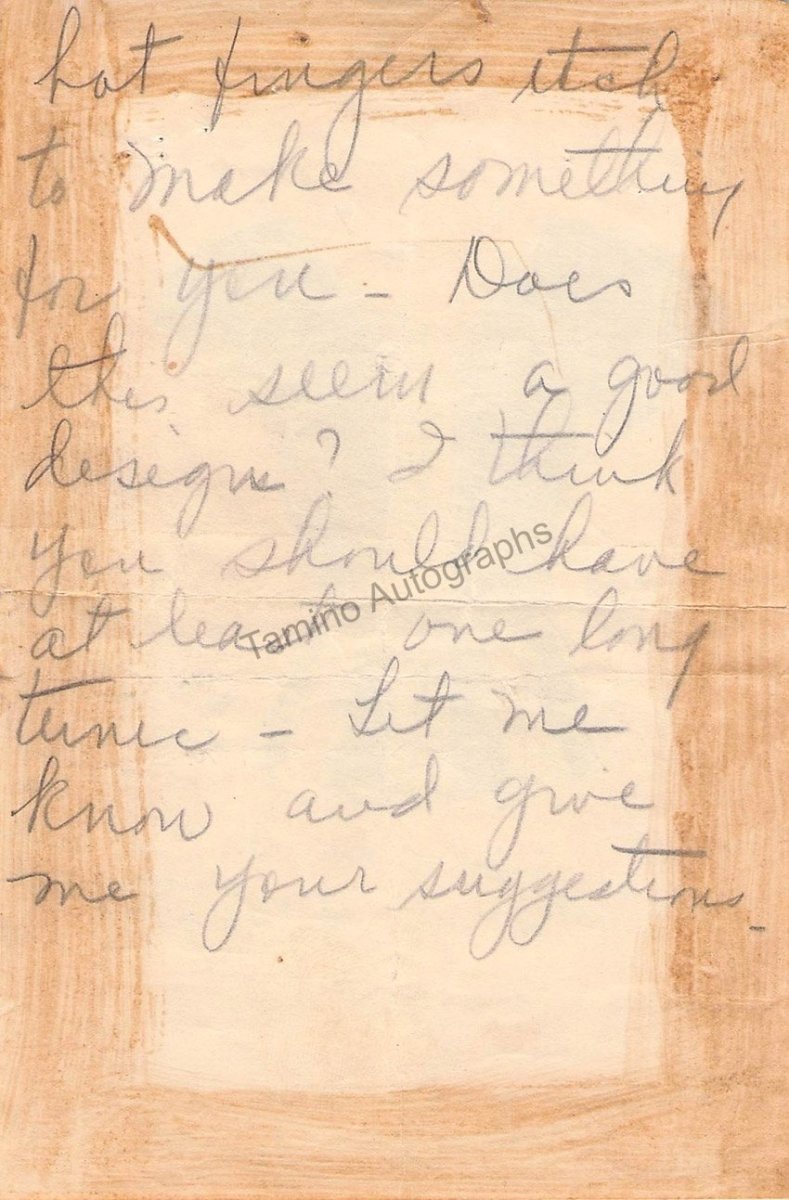 hot fingers itch
to make something
for you - Does
this seem a good
design? I think
you should have
at least one long
tunic - Let me
know and give
me your suggestions -
Tamino Autographs